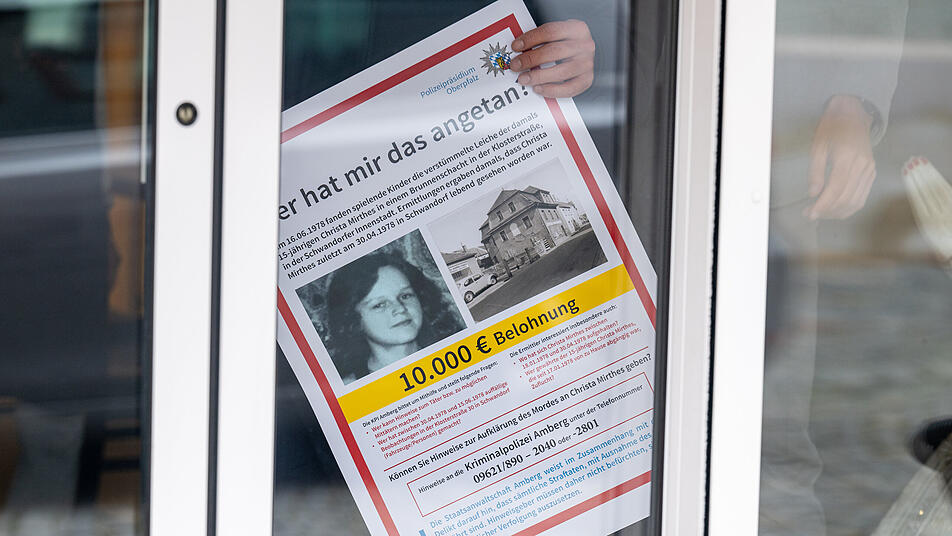 Polizeipräsidium
Oberpfalz
er hat mir das angetan?
m 16.06.1978 fanden spielende Kinder die verstümmelte Leiche der damals
15-jährigen Christa Mirthes in einem Brunnenschacht in der Klosterstraße,
in der Schwandorfer Innenstadt. Ermittlungen ergaben damals, dass Christa
Mirthes zuletzt am 30.04.1978 in Schwandorf lebend gesehen worden war.
10.000 € Belohnung
Die KPI Amberg bittet um Mithilfe und stellt folgende Fragen:
• Wer kann Hinweise zum Täter bzw. zu möglichen
Mittätern machen?
• Wer hat zwischen 30.04.1978 und 15.06.1978 auffällige
Beobachtungen in der Klosterstraße 30 in Schwandorf
(Fahrzeuge/Personen) gemacht?
Die Ermittler interessiert insbesondere auch:
• Wo hat sich Christa Mirthes zwischen
18.01.1978 und 30.04.1978 aufgehalten?
• Wer gewährte der 15-jährigen Christa Mirthes,
die seit 17.01.1978 von zu Hause abgängig war,
Zuflucht?
Können Sie Hinweise zur Aufklärung des Mordes an Christa Mirthes geben?
Hinweise an die Kriminalpolizei Amberg unter der Telefonnummer
09621/890 – 2040 oder -2801
Die Staatsanwaltschaft Amberg weist im Zusammenhang mit
Delikt darauf hin, dass sämtliche Straftaten, mit Ausnahme des
rt sind. Hinweisgeber müssen daher nicht befürchten, s
licher Verfolgung auszusetzen.